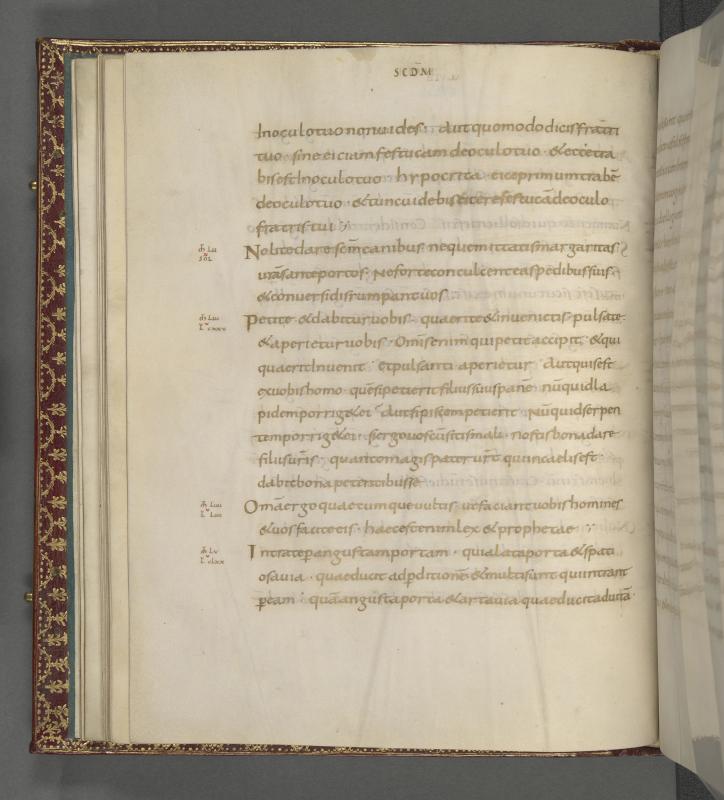 SCDM
In oculo tuo non uides · Aut quomodo dicis fratri
tuo · sine eiciam festucam de oculo tuo · & ecce tra
bis est In oculo tuo · hypocrita · eice primum trabē
de oculo tuo · & tunc uidebis eicere festucā de oculo
fratris tui
Nolite dare scm̄ canibus · neque mittatis margaritas
urās ante porcos · Ne forte conculcent eas pedibus suis ·
& conuersi disrumpant uos
Petite · & dabitur uobis · quaerite & inuenietis · pulsate
& aperietur uobis · Omis enim qui petit accipit · & qui
quaerit Inuenit · et pulsanti aperietur · Aut quis est
ex uobis homo · quē si petierit filius suus panē · nūquid la
pidem porrig& ei · Aut si piscem petierit · Nūquid serpen
tem porrig& ei · si ergo uos cū sitis mali · nostis bona dare
filiis uris · quanto magis pater ur̄ qui in caelis est ·
dabit bona petentibus se
Omā ergo quaecumque uultis · ut faciant uobis homines
& uos facite eis · haec est enim lex & prophetae
Intrate p̄ angustam portam · quia lata porta & spati
osa uia · quae ducit ad p̄ditionē & multi sunt qui intrant
p̄ eam · quā angusta porta & arta uia quae ducit ad uitā